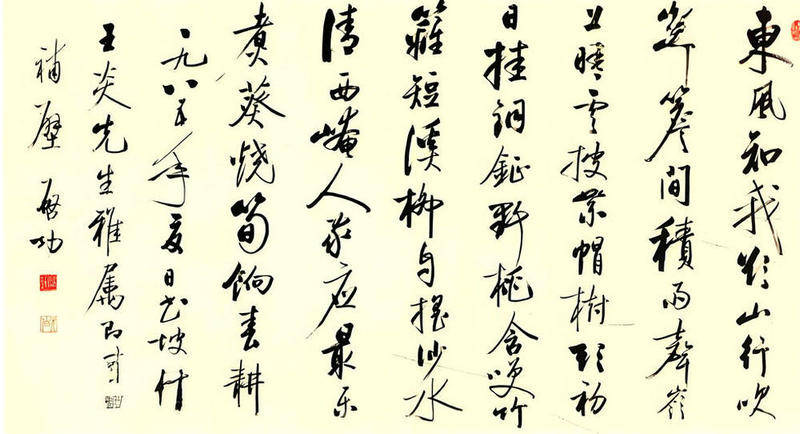 東風知我欲山行吹
斷簷間積雨聲嶺
上晴雲披絮帽樹頭初
日挂銅鉦野桃含咲竹
籬短溪柳自搖沙水
清西崦人家應最樂
煮葵燒筍餉春耕
一九八五年夏日書坡什
王炎先生雅屬即希
補壁 啟功